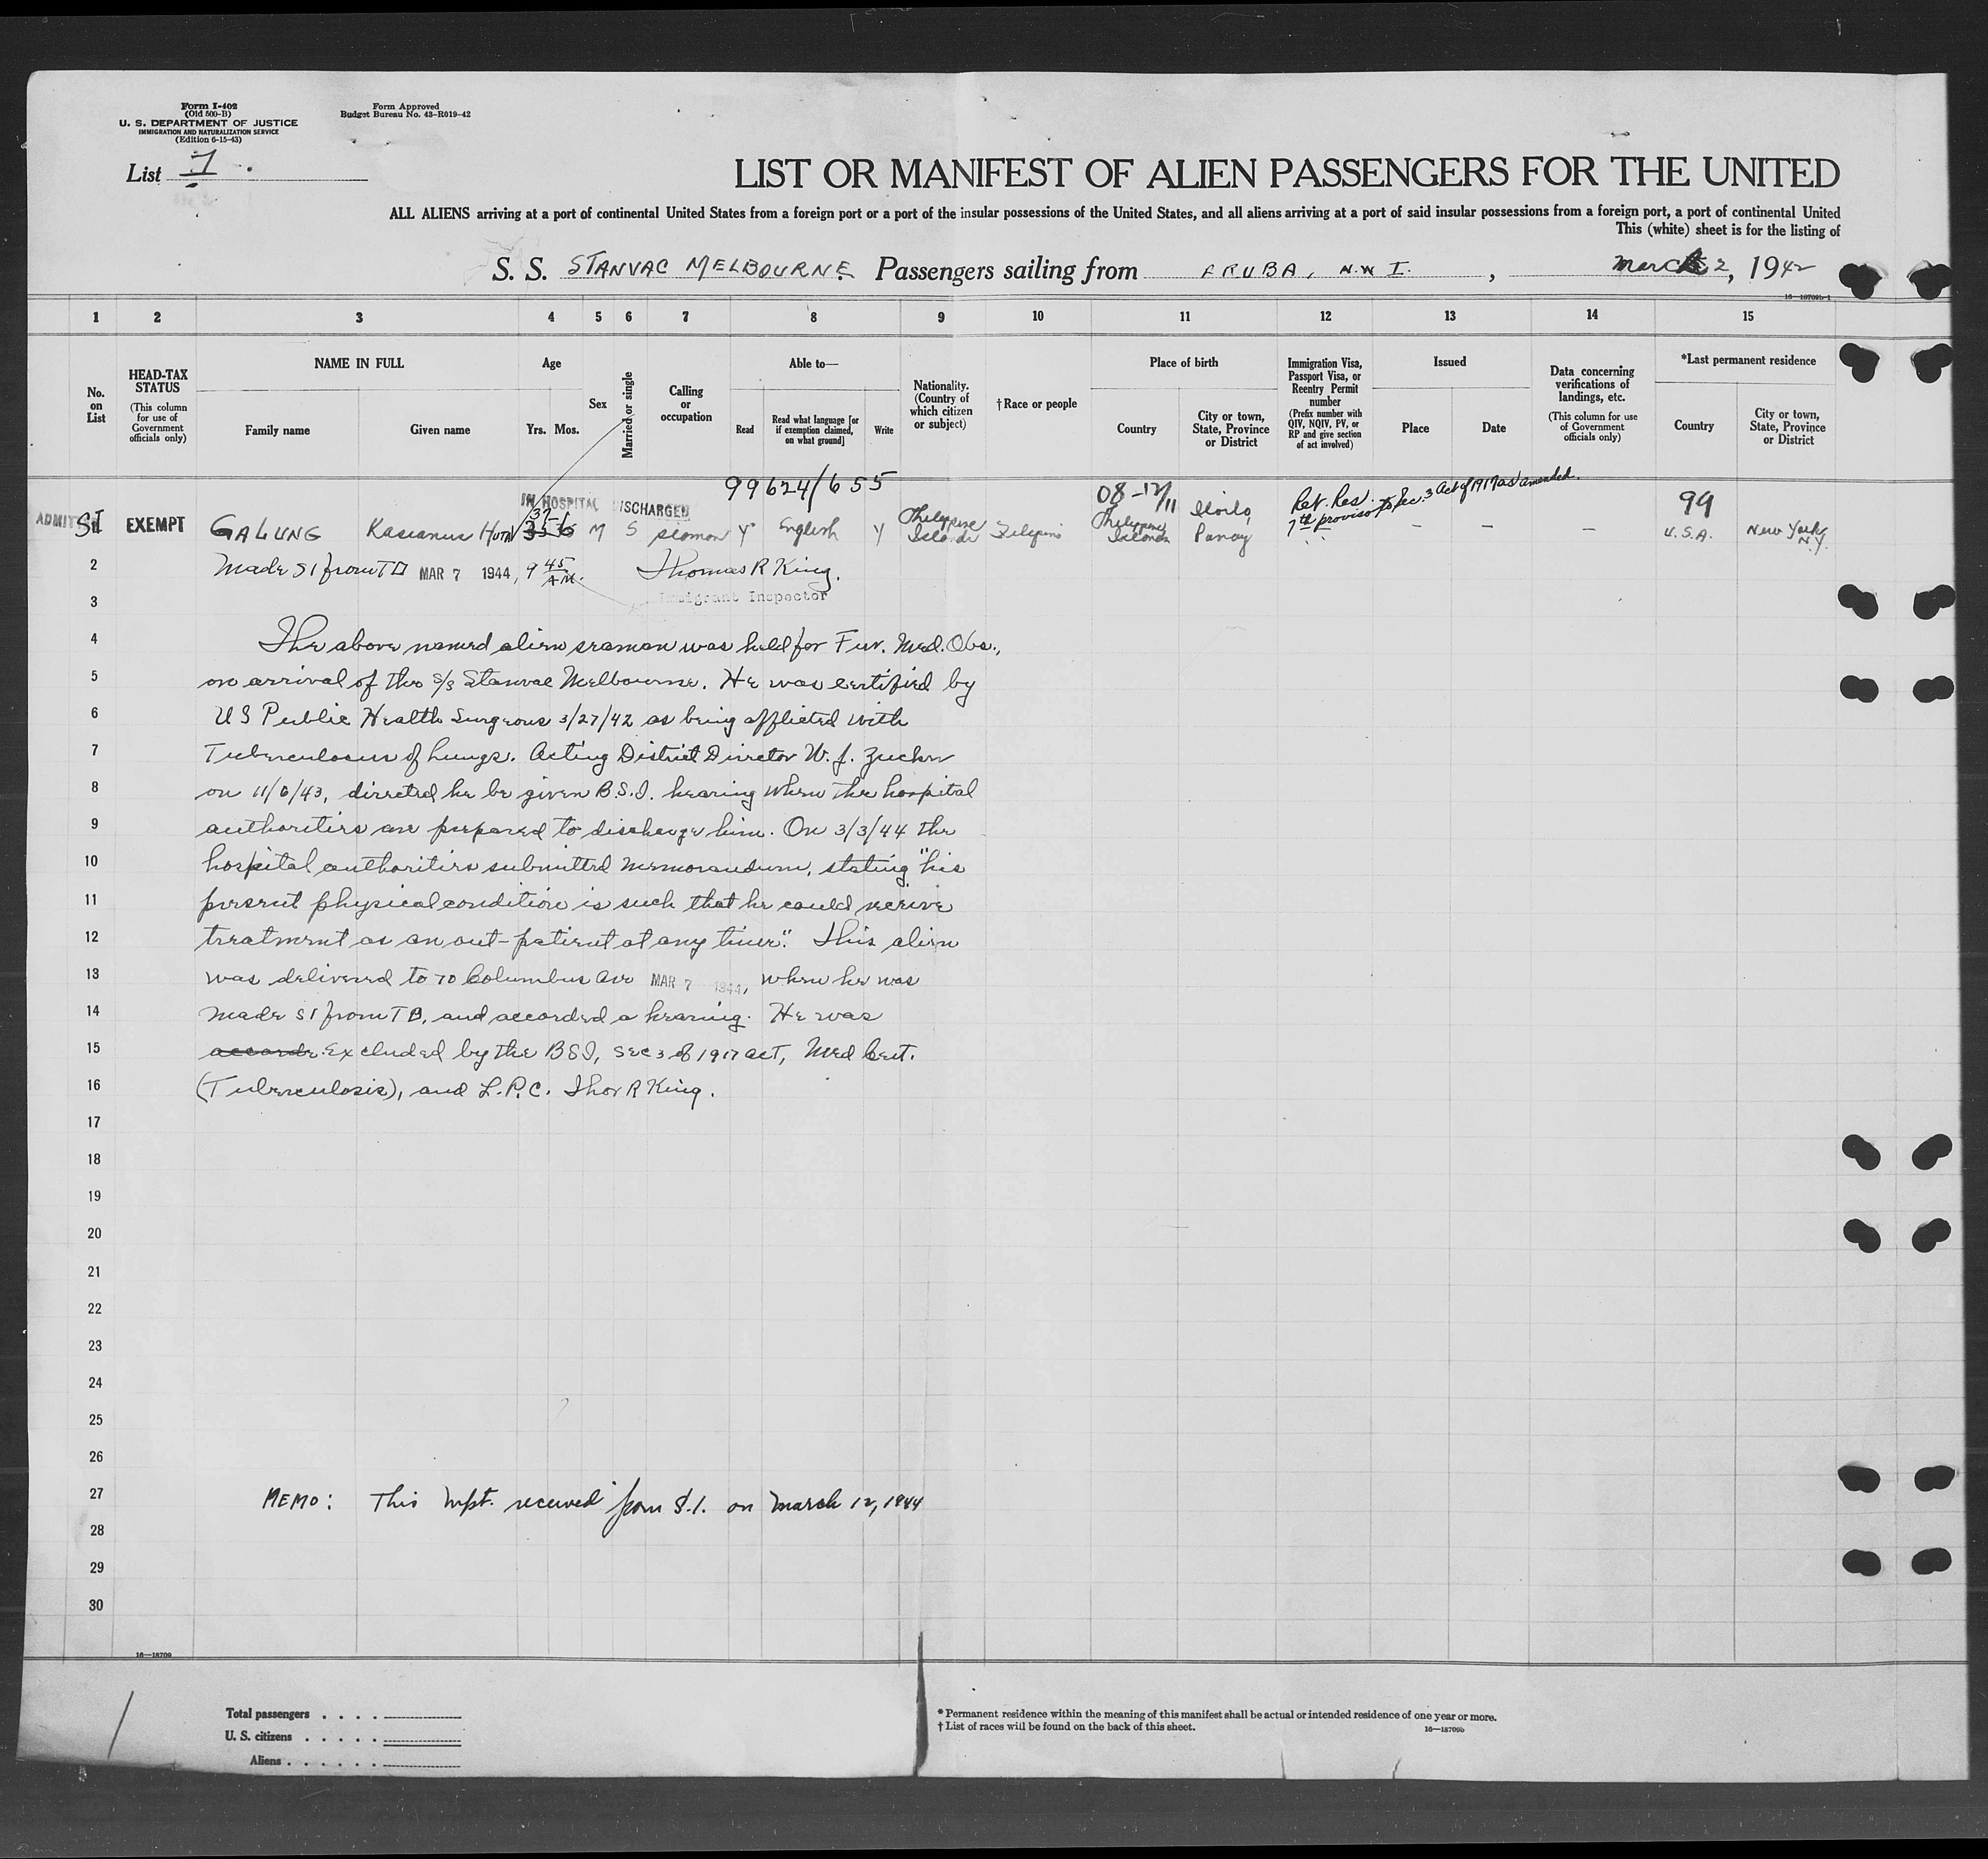 Form I-402
(Old 500-B)
U. S. DEPARTMENT OF JUSTICE
IMMIGRATION AND NATURALIZATION SERVICE
(Edition 6-15-43)
Form Approved
Budget Bureau No. 43-R019-42
List 1
LIST OR MANIFEST OF ALIEN PASSENGERS FOR THE UNITED
ALL ALIENS arriving at a port of continental United States from a foreign port or a port of the insular possessions of the United States, and all aliens arriving at a port of said insular possessions from a foreign port, a port of continental United
This (white) sheet is for the listing of
S. S. STANVAC MELBOURNE Passengers sailing from ARUBA, N.W I. , March 2, 1942
16-18709b-1
1 2 3 4 5 6 7 8 9 10 11 12 13 14 15
No. on List
HEAD-TAX STATUS
(This column for use of Government officials only)
NAME IN FULL
Family name
Given name
Age
Yrs. Mos.
Sex
Married or single
Calling or occupation
Able to—
Read
Read what language [or if exemption claimed, on what ground]
Write
Nationality. (Country of which citizen or subject)
†Race or people
Place of birth
Country
City or town, State, Province or District
Immigration Visa, Passport Visa, or Reentry Permit number
(Prefix number with QIV, NQIV, PV, or RP and give section of act involved)
Issued
Place
Date
Data concerning verifications of landings, etc.
(This column for use of Government officials only)
*Last permanent residence
Country
City or town, State, Province or District
99624/655
IN HOSPITAL DISCHARGED
08-12/11
Ret. Res.
7th proviso to Sec 3 Act of 1917 as amended.
99
ADMITTED SI EXEMPT GALUNG Kasianus 37 M S seaman Y English Y Philippine Islands Filipino Philippine Islands Iloilo, Panay – – – U.S.A. New York, N.Y.
2 Made SI from TD MAR 7 1944, 9 45 A.M. Thomas R King.
3 Immigrant Inspector
4 The above named alien seaman was held for Fur. Med. Obs.,
5 on arrival of the S/S Stanvac Melbourne. He was certified by
6 US Public Health Surgeons 3/27/42 as being afflicted with
7 Tuberculosis of lungs. Acting District Director W. J. Zucker
8 on 11/6/43, directed he be given B.S.I. hearing when the hospital
9 authorities are prepared to discharge him. On 3/3/44 the
10 hospital authorities submitted memorandum, stating "his
11 present physical condition is such that he could receive
12 treatment as an out-patient at any time". This alien
13 was delivered to 70 Columbus Ave MAR 7 1944, when he was
14 made SI from TD, and accorded a hearing. He was
15 accorde Excluded by the BSI, Sec 3 of 1917 act, Med Cert.
16 (Tuberculosis), and L.P.C. Thos R King.
17
18
19
20
21
22
23
24
25
26
27 MEMO: This Mfst. received from S.I. on March 12, 1944
28
29
30
16—18709
Total passengers . . . .
U. S. citizens . . . . .
Aliens . . . . . .
* Permanent residence within the meaning of this manifest shall be actual or intended residence of one year or more.
† List of races will be found on the back of this sheet.
16—18709b